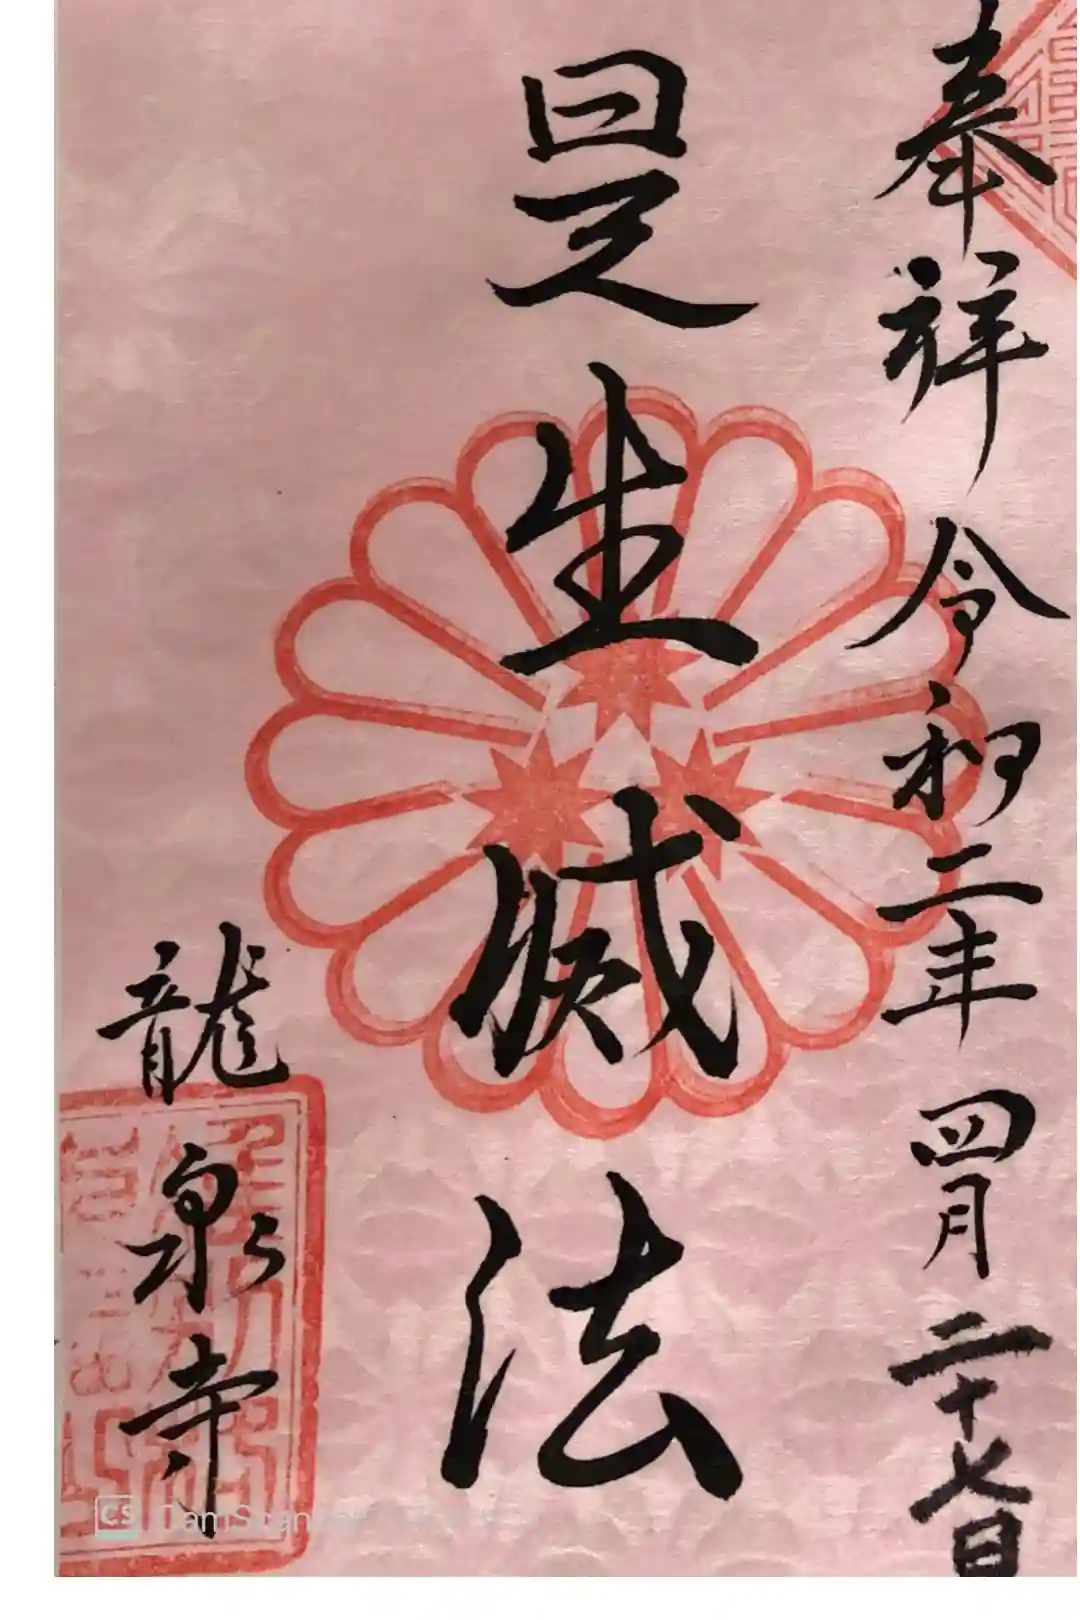 奉拝 令和二年 四月 二十七日
是生滅法
龍泉寺
CS CamScanner